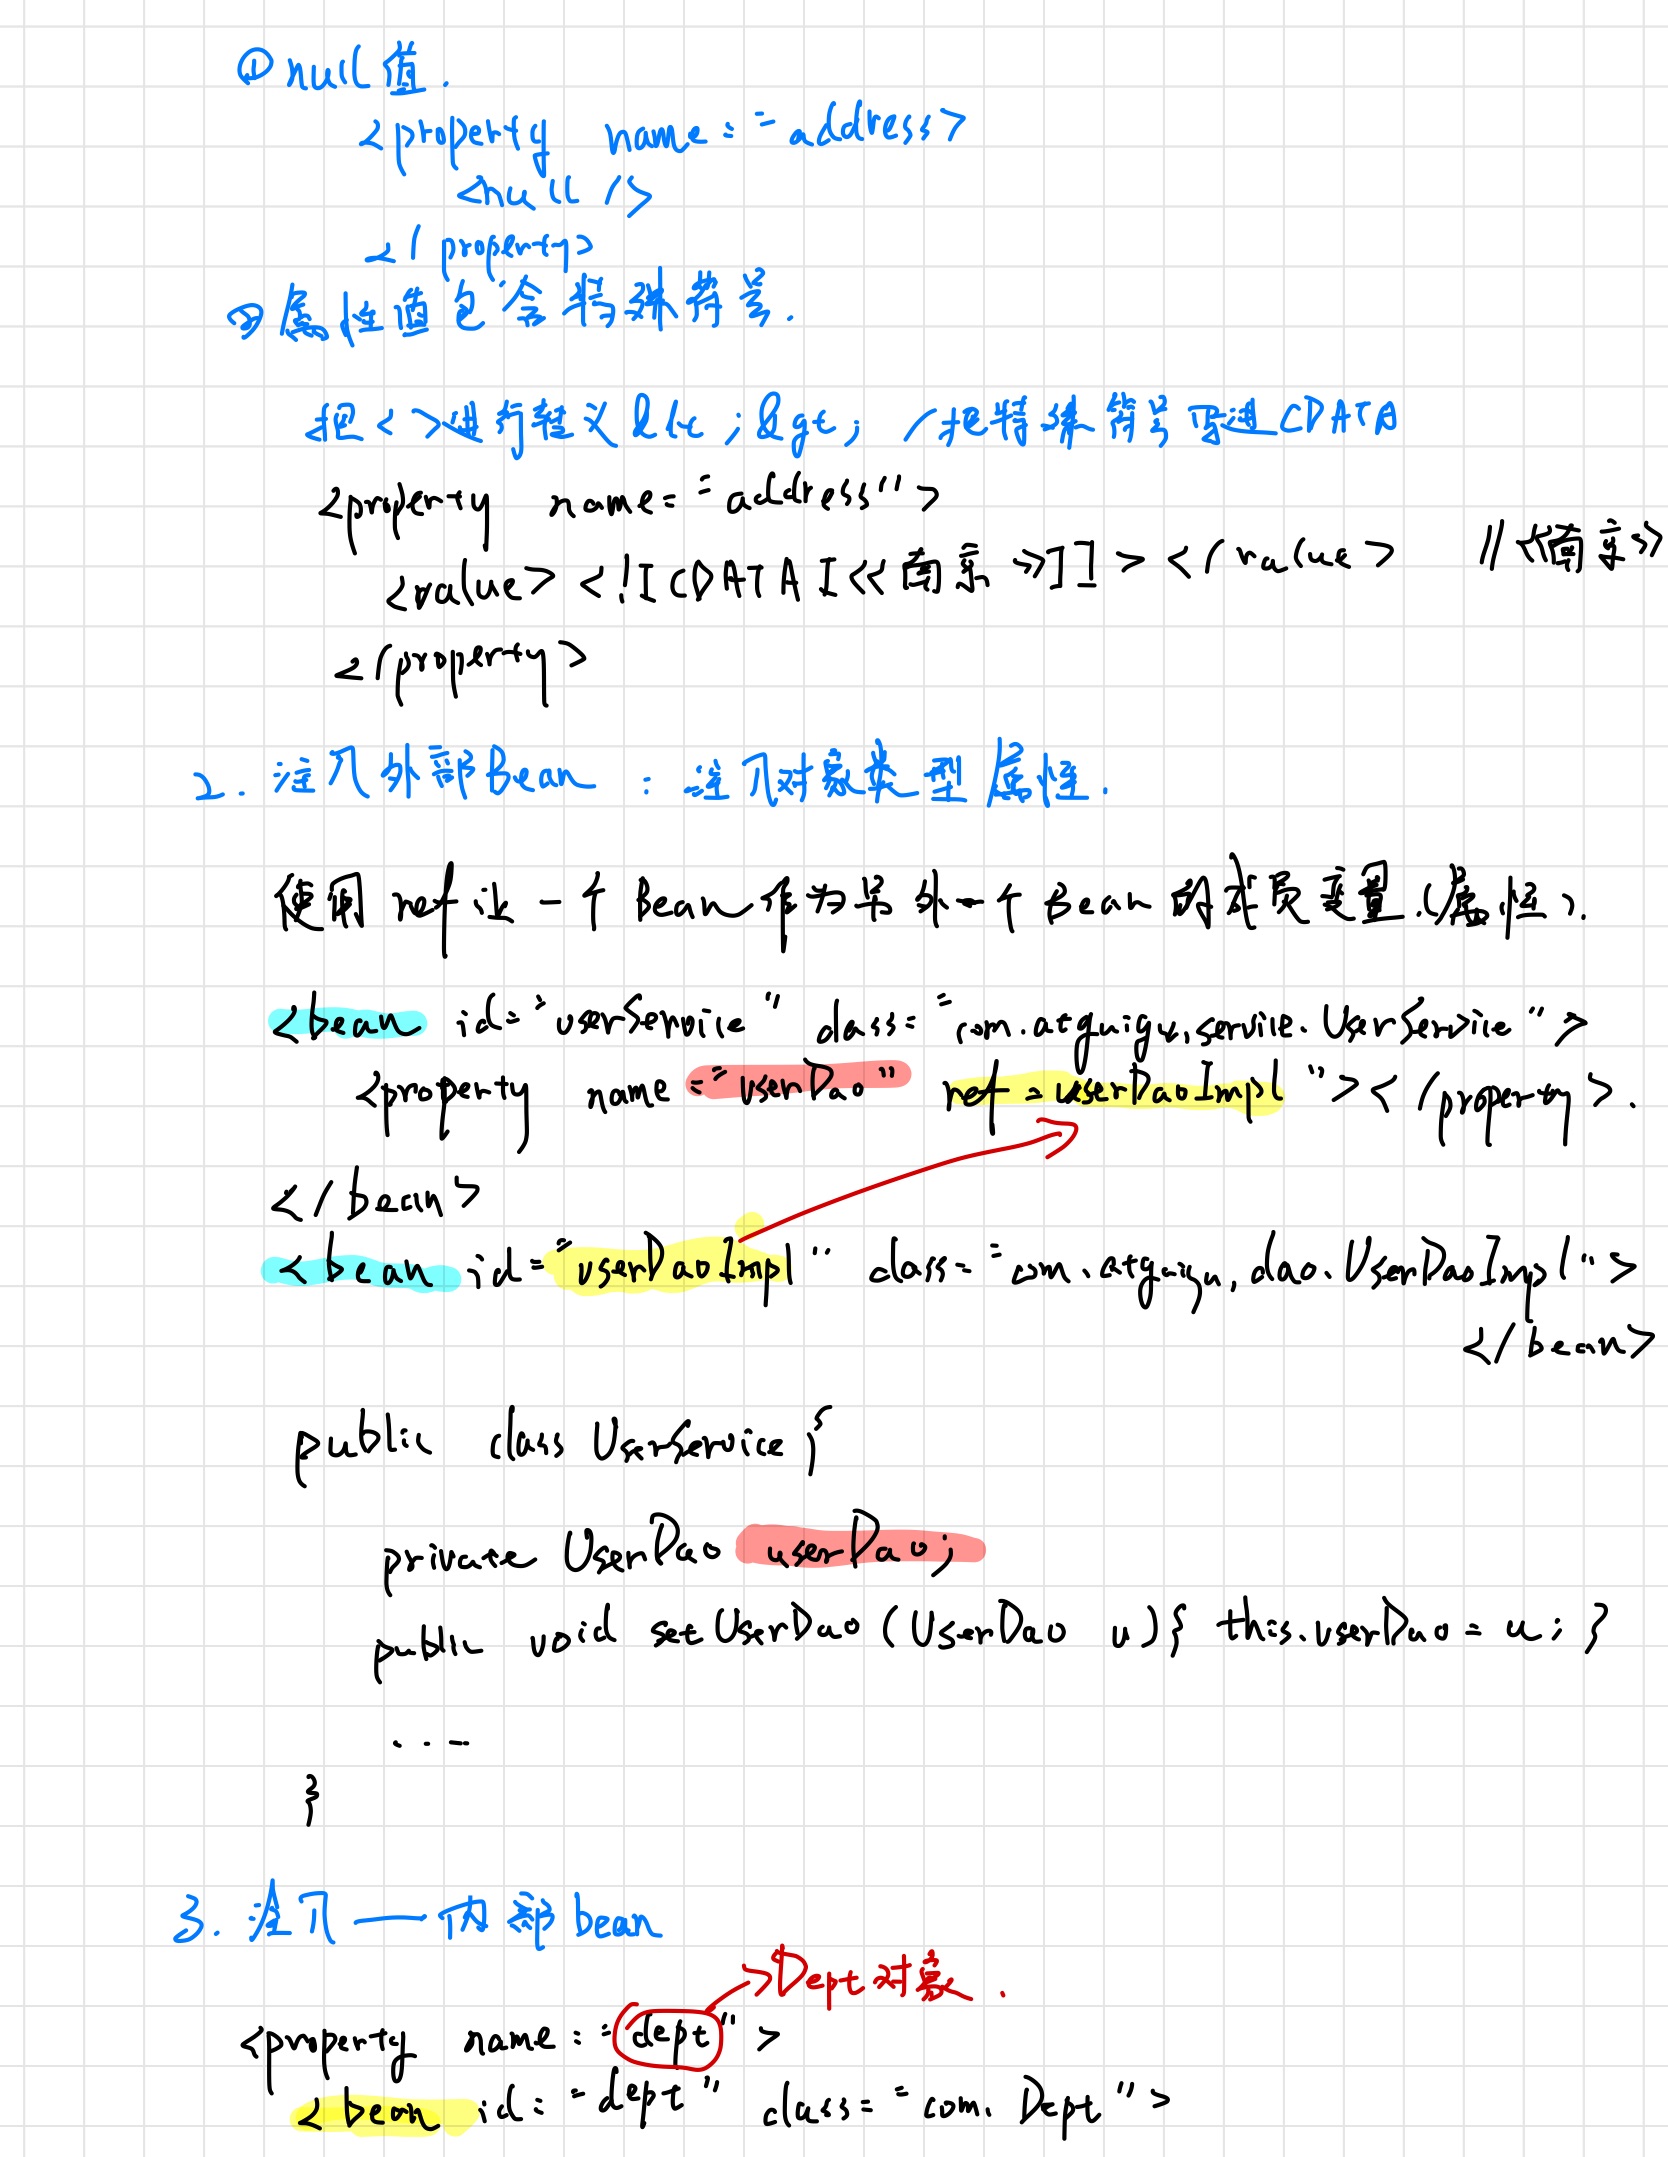 ① null值.
<property name="address>
<null />
</property>
② 属性值包含特殊符号.
把<>进行转义 &lt;&gt; / 把特殊符号写进CDATA
<property name="address">
<value><![CDATA[<<南京>>]]></value> //<<南京>>
</property>
2. 注入外部Bean : 注入对象类型属性.
使用ref让一个Bean作为另外一个Bean的成员变量.(属性).
<bean id="userService" class="com.atguigu.service.UserService">
<property name="userDao" ref="userDaoImpl"></property>.
</bean>
<bean id="userDaoImpl" class="com.atguigu.dao.UserDaoImpl">
</bean>
public class UserService{
private UserDao userDao;
public void setUserDao(UserDao u){ this.userDao = u; }
....
}
3. 注入——内部bean
Dept对象.
<property name="dept">
<bean id="dept" class="com.Dept">